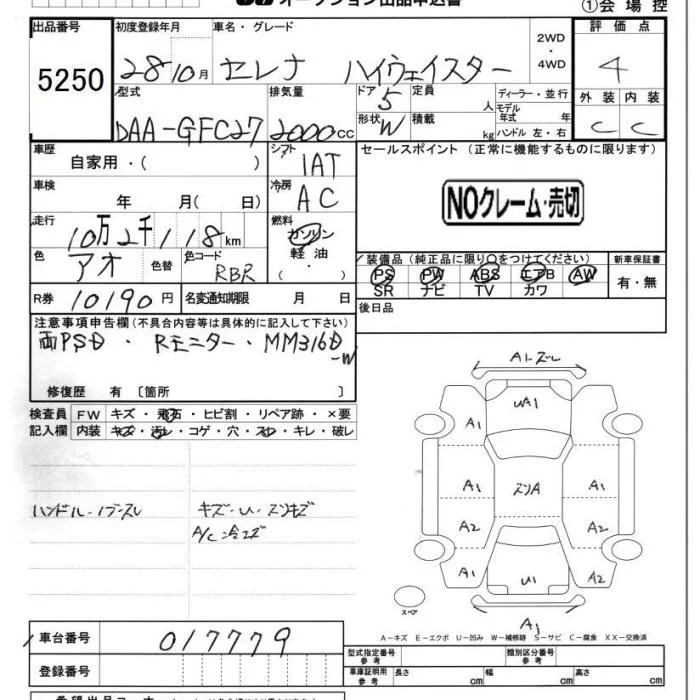 オークション出品申込書
①会場控
出品番号 初度登録年月 車名・グレード 2WD・4WD 評価点
5250 28 10月 セレナ ハイウェイスター 4
型式 排気量 ドア 5 定員 人 ディーラー・並行 外装 内装
DAA-GFC27 2000cc 形状 W 積載 kg モデル年式 年 ハンドル 左・右 C C
車歴 自家用・( ) シフト IAT セールスポイント(正常に機能するものに限ります)
車検 年 月( 日) 冷房 AC NOクレーム・売切
走行 10万2千118km 燃料 ガソリン 軽油・( )
色 アオ 色替 色コード RBR 装備品(純正品に限り○をつけてください) 新車保証書
PS PW ABS エアB AW 有・無
SR ナビ TV カワ
R券 10190円 名変通知期限 月 日 後日品
注意事項申告欄(不具合内容等は具体的に記入して下さい)
両PSD・Rモニター・MM316D-W
修復歴 有 〔箇所 〕
検査員 FW キズ・飛石・ヒビ割・リペア跡・×要
記入欄 内装 キズ・汚レ・コゲ・穴・スレ・キレ・破レ
ハンドル・ノブスレ キズ・U・スリキズ
A/C
A1・ズレ
UA1
A1
A1 スリA A1
A2 A2
A1 U1 A2
スペア A1
A-キズ E-エクボ U-凹み W-補修跡 S-サビ C-腐食 XX-交換済
車台番号 017779 型式指定番号 参考 類別区分番号 参考
登録番号 車庫証明用 参考 長さ cm 幅 cm 高さ cm
希望出品コーナー